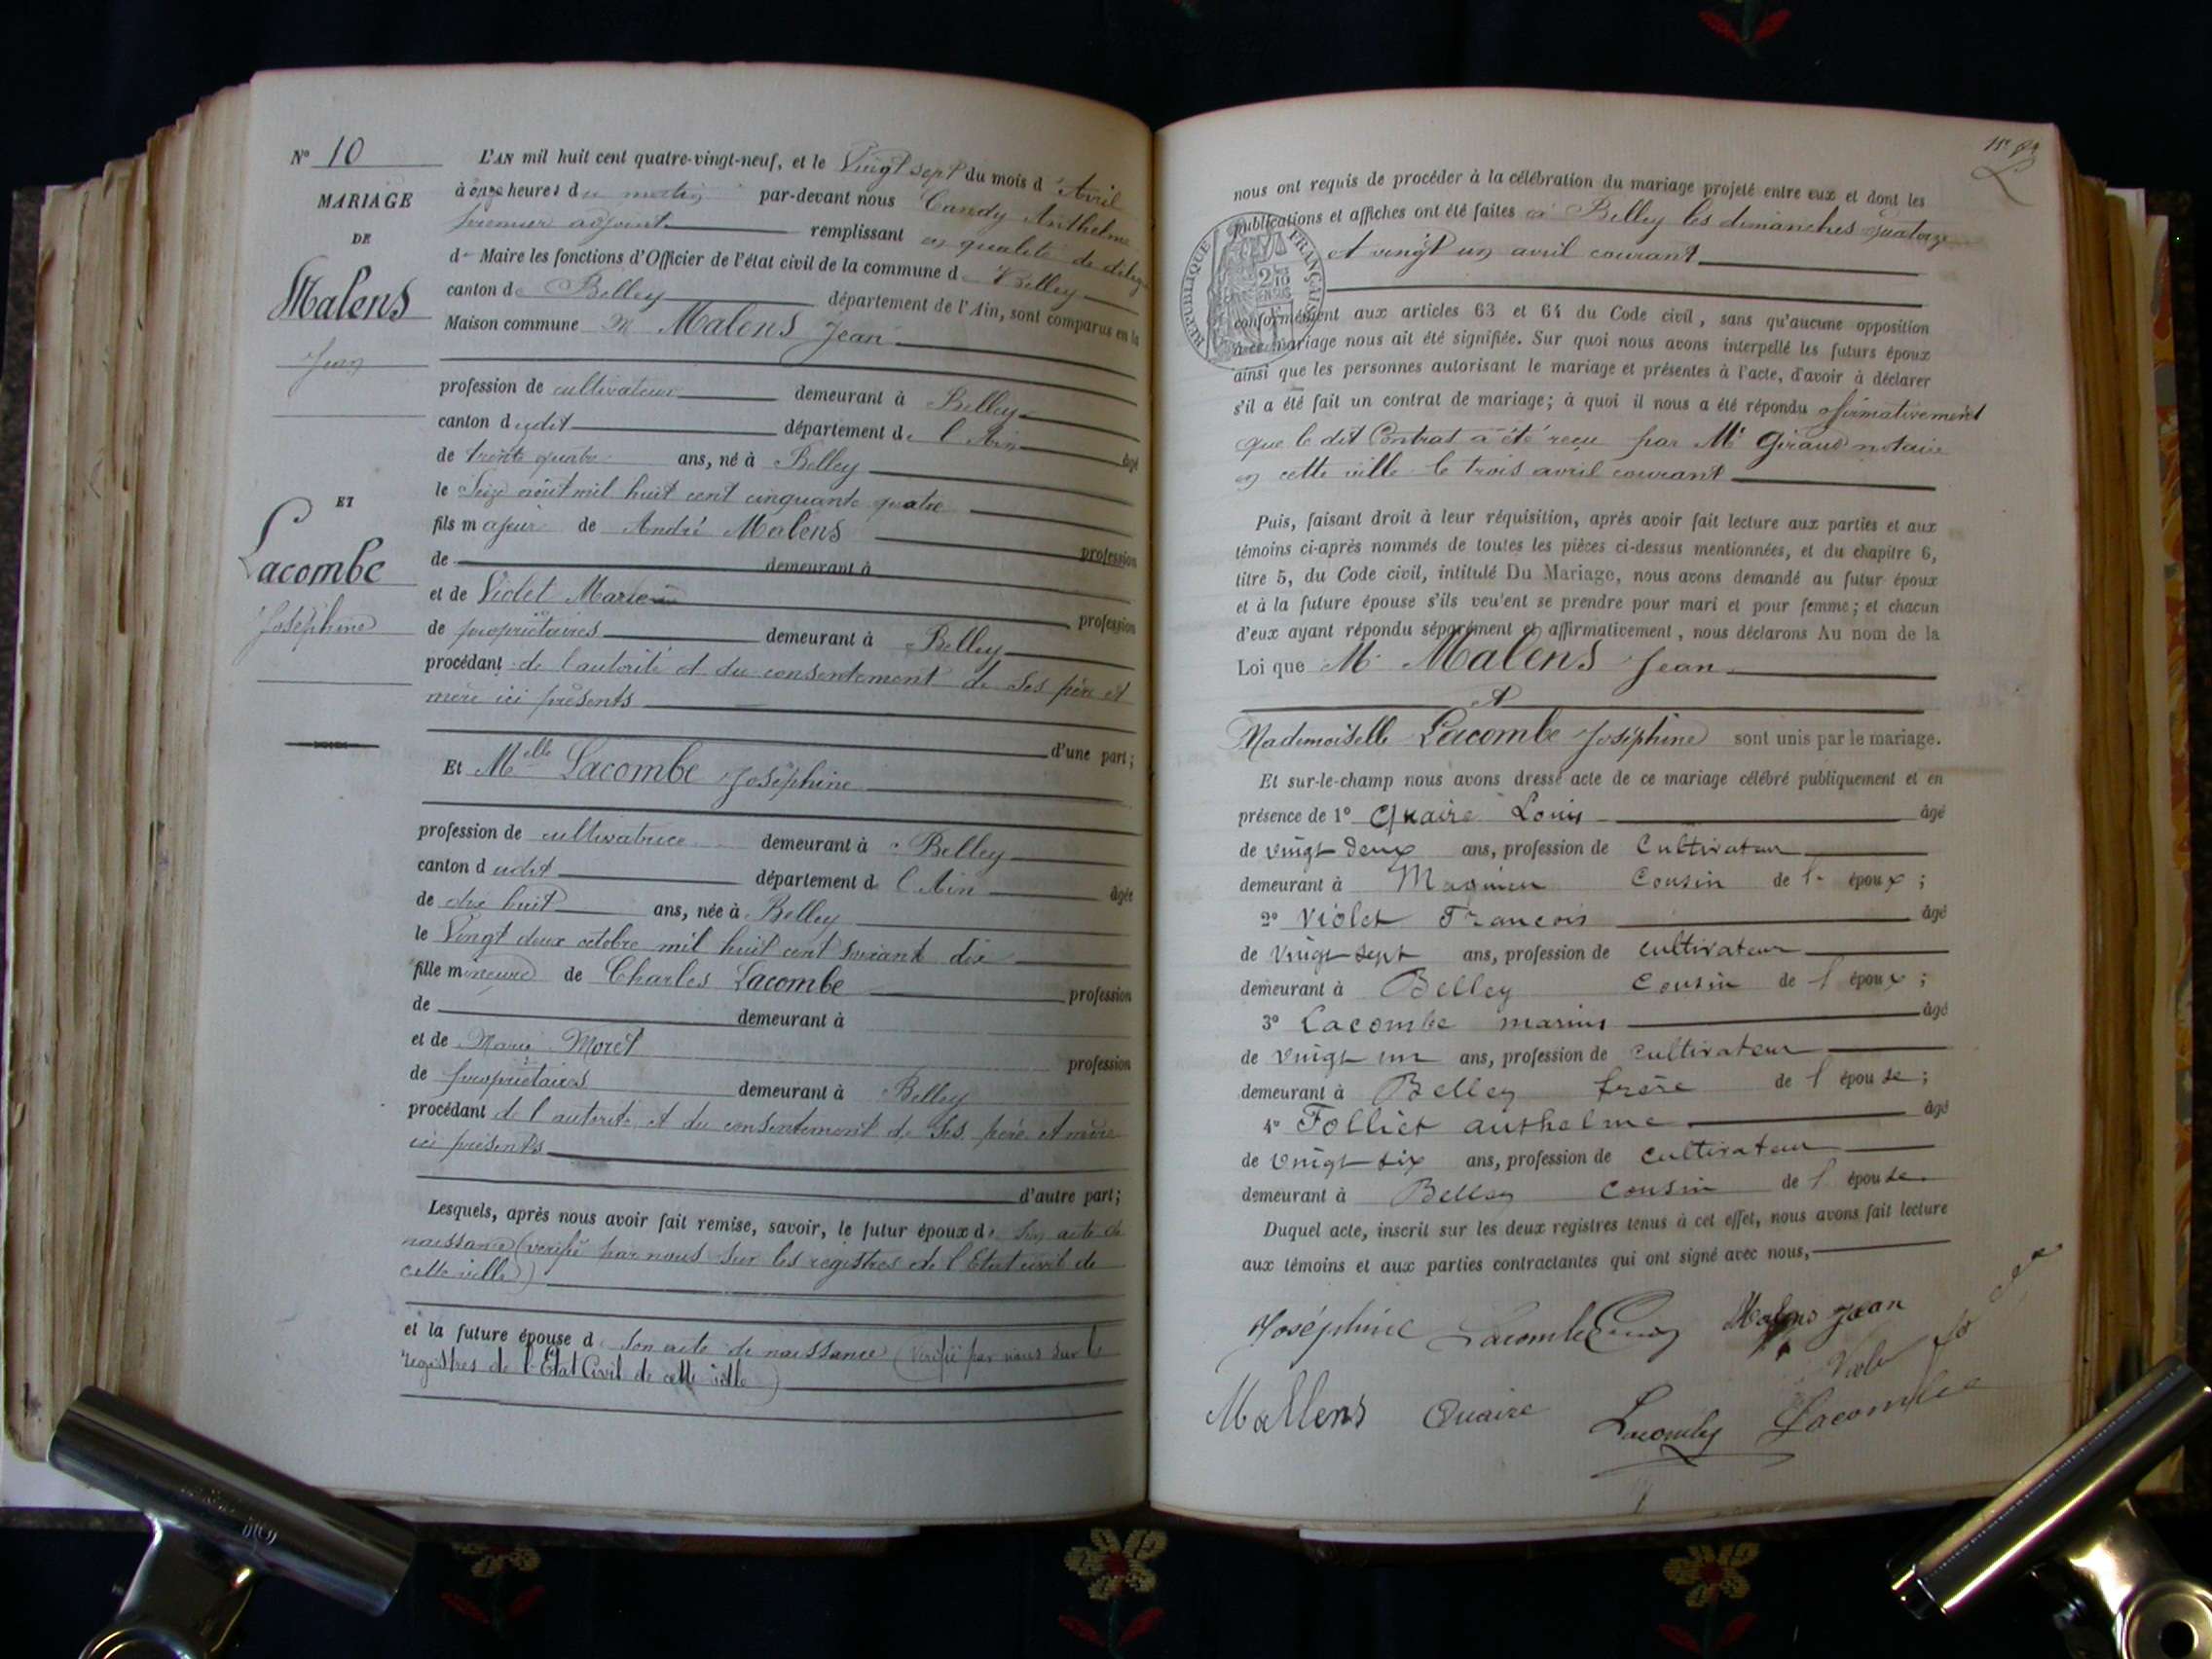 N° 10
MARIAGE
DE
Malens
Jean
ET
Lacombe
Joséphine
L'AN mil huit cent quatre-vingt-neuf, et le Vingt sept du mois d'Avril
à onze heures du matin par-devant nous Candy Anthelme
premier adjoint remplissant en qualité de délégué
de Maire les fonctions d'Officier de l'état civil de la commune de Belley
canton de Belley département de l'Ain, sont comparus en la
Maison commune M Malens Jean
profession de cultivateur demeurant à Belley
canton dudit département de l'Ain âgé
de trente quatre ans, né à Belley
le Seize août mil huit cent cinquante quatre
fils majeur de André Malens profession
de demeurant à
et de Violet Marie profession
de propriétaires demeurant à Belley
procédant de l'autorité et du consentement de ses père et
mère ici présents
d'une part;
Et Melle Lacombe Joséphine
profession de cultivatrice demeurant à Belley
canton dudit département de l'Ain âgée
de dix huit ans, née à Belley
le Vingt deux octobre mil huit cent soixante dix
fille mineure de Charles Lacombe profession
de demeurant à
et de Marie Moret profession
de propriétaires demeurant à Belley
procédant de l'autorité et du consentement de ses père et mère
ici présents
d'autre part;
Lesquels, après nous avoir fait remise, savoir, le futur époux de son acte de
naissance (vérifié par nous sur les registres de l'Etat civil de
cette ville)
et la future épouse de son acte de naissance (vérifié par nous sur les
registres de l'Etat Civil de cette ville)
nous ont requis de procéder à la célébration du mariage projeté entre eux et dont les
publications et affiches ont été faites à Belley les dimanches quatorze
et vingt un avril courant
RÉPUBLIQUE FRANÇAISE
conformément aux articles 63 et 64 du Code civil, sans qu'aucune opposition
à ce mariage nous ait été signifiée. Sur quoi nous avons interpellé les futurs époux
ainsi que les personnes autorisant le mariage et présentes à l'acte, d'avoir à déclarer
s'il a été fait un contrat de mariage; à quoi il nous a été répondu afirmativement
que le dit Contrat a été reçu par Me Giraud notaire
en cette ville le trois avril courant
Puis, faisant droit à leur réquisition, après avoir fait lecture aux parties et aux
témoins ci-après nommés de toutes les pièces ci-dessus mentionnées, et du chapitre 6,
titre 5, du Code civil, intitulé Du Mariage, nous avons demandé au futur époux
et à la future épouse s'ils veulent se prendre pour mari et pour femme; et chacun
d'eux ayant répondu séparément et affirmativement, nous déclarons Au nom de la
Loi que M. Malens Jean
Et
Mademoiselle Lacombe Joséphine sont unis par le mariage.
Et sur-le-champ nous avons dressé acte de ce mariage célébré publiquement et en
présence de 1° Quaire Louis âgé
de vingt deux ans, profession de Cultivateur
demeurant à Magnieu Cousin de l'époux;
2° Violet Francois âgé
de vingt sept ans, profession de cultivateur
demeurant à Belley Cousin de l'époux;
3° Lacombe marius âgé
de vingt un ans, profession de cultivateur
demeurant à Belley frère de l'épouse;
4° Folliet anthelme âgé
de vingt six ans, profession de cultivateur
demeurant à Belley cousin de l'épouse.
Duquel acte, inscrit sur les deux registres tenus à cet effet, nous avons fait lecture
aux témoins et aux parties contractantes qui ont signé avec nous,
Joséphine Lacombe Malens Jean
Mallens Quaire Lacombe Lacombe